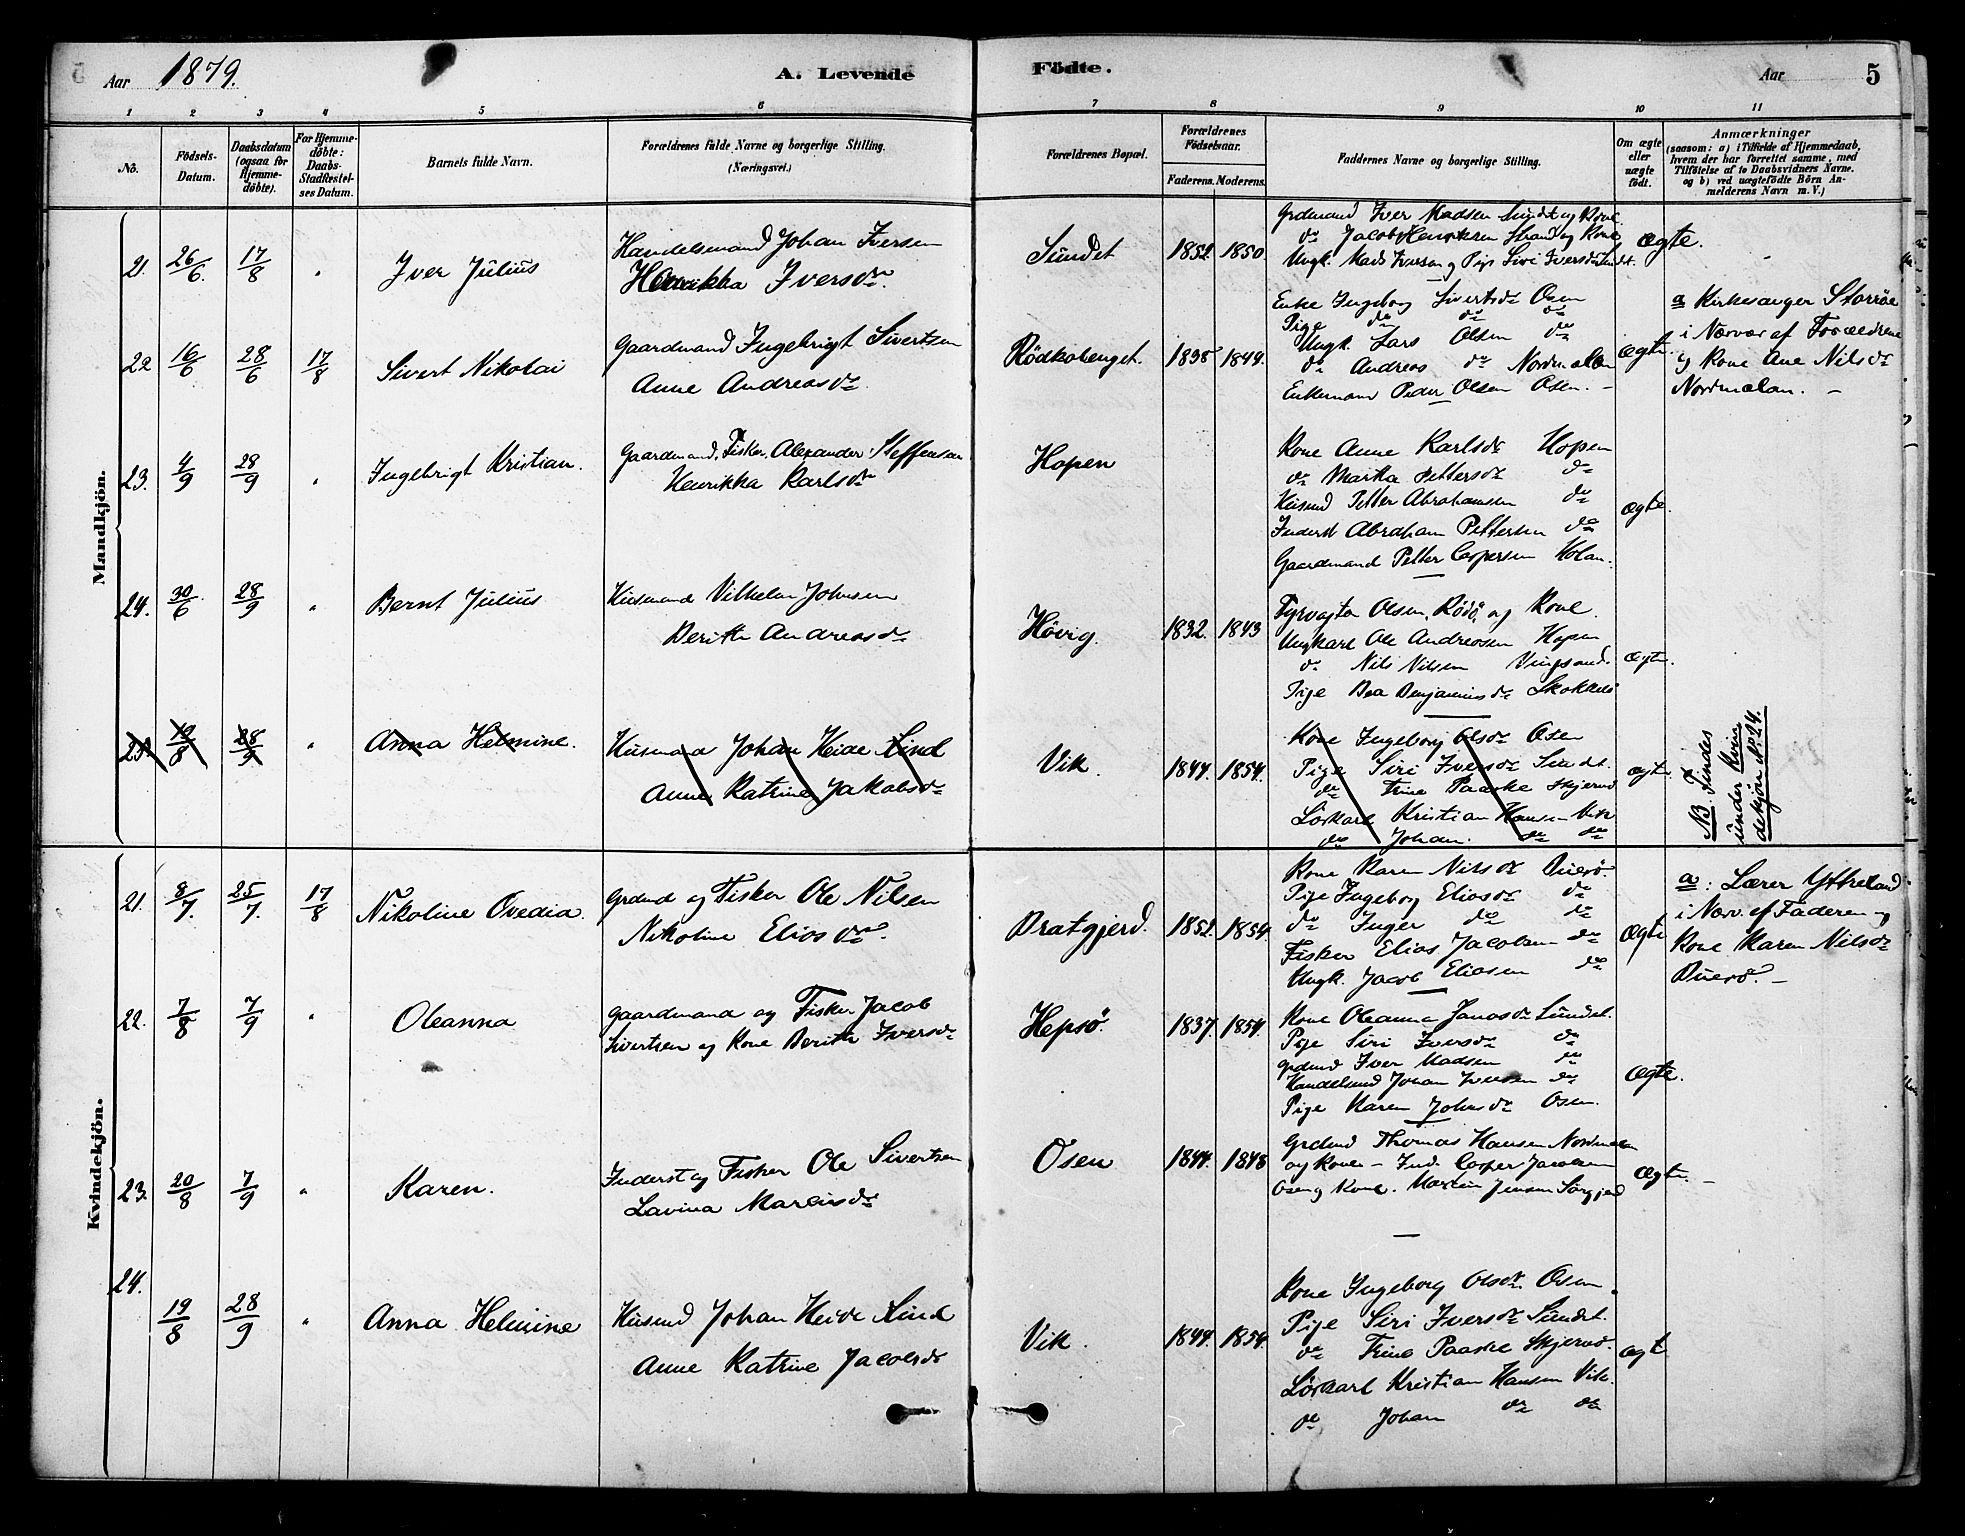 Aar 1879. A. Levende Födte. Aar 5
1 2 3 4 5 6 7 8 9 10 11
No. Födsels-Datum. Daabsdatum (ogsaa for Hjemme-döbte). For Hjemme-döbte: Daabs-Stadfæstel-ses Datum. Barnets fulde Navn. Forældrenes fulde Navne og borgerlige Stilling. (Næringsvei.) Forældrenes Bopæl. Forældrenes Födselsaar. Faderens. Moderens. Faddernes Navne og borgerlige Stilling. Om ægte eller uægte födt. Anmærkninger (saasom: a) i Tilfælde af Hjemmedaab, hvem der har forrettet samme, med Tilföielse af to Daabsvidners Navne. og b) ved uægtefödte Börn An-melderens Navn m. V.)
Mandkjön.
21. 26/6. 17/8 " Iver Julius
Handelsmand Johan Iversen
Henrikka Iversdr.
Sundet 1852. 1850.
Grdmand Iver Madsen Sundet og Kone
do Jacob Henriksen Strand og Kone
Ungk. Mads Iversen og Pige Siri Iversdr Sundet.
Ægte.
22 16/6 28/6 17/8 Sivert Nikolai
Gaardmand Ingebrigt Sivertsen
Anne Andreasdr.
1838 1849.
Enke Ingeborg Sivertsdr Osen
Pige do do do
Ungk. Lars Olsen do
do Andreas do Nordmelan
Enkemand Peder Olsen Osen. –
Ægte.
a Kirkesanger Storröe
i Nærvær af Forældrene
og Kone Ane Nilsdr
Nordmelan. –
23. 4/9 28/9 " Ingebrigt Kristian.
Gaardmand, Fisker, Alexander Steffensen
Henrikka Karlsdr
Hopen
Kone Anne Karlsdr Hopen
do Marta Pettersdr do
Husmd Petter Abrahamsen do
Inderst Abraham Pettersen do
Gaardmand Petter Caspersen Holan.
ægte.
24. 30/6 28/9 " Bernt Julius
Husmand Vilhelm Johnsen
Berith Andreasdr
Hövig. 1832. 1843
Fyrvogter Olsen, Rödö, og Kone.
Ungkarl Ole Andreasen Hopen
do Nils Nilsen Vingsand.
Pige Bea Benjaminsdr
ægte.
25. 19/8 28/9 " Anna Helmine.
Husmand Johan Heide Lind
Anne Katrine Jakobsdr
Vik. 1844. 1854.
Kone Ingeborg Olsdr Osen
Pige Siri Iversdr Sundet.
do Trine Paaske Skjervö
Löskarl Kristian Hansen Vik
do Johan. do do
ægte
NB. Findes
under Kvin
dekjön No. 24.
Kvindekjön.
21. 8/7. 25/7. 17/8 Nikoline Ovedia.
Grdmd og Fisker Ole Nilsen
Nikoline Eliasdr.
Dratgjerd. 1852. 1854.
Kone Karen Nilsdr
Pige Ingeborg Eliasdr do
do Inger do do
Fisker Elias Jacobsen do
Ungk. Jacob Eliasen do
Ægte
a: Lærer Yttreland
i Nærv. af Faderen og
Kone Karen Nilsdr
22. 7/8 7/9 " Oleanna
Gaardmand og Fisker Jacob
Sivertsen og Kone Berith Iversdr
Hepsö. 1837. 1854.
Kone Oleanna Jonasdr Sundet.
Pige Siri Iversdr do
Grdmd Iver Madsen do
Handelsmd Johan Iversen do
Pige Karen Johnsdr Osen.
Ægte.
23. 20/8 7/9 " Karen.
Inderst og Fisker Ole Sivertsen
Lavina Mareiusdr
Osen 1844. 1848
Grdmd Thomas Hansen Nordmelan
og Kone – Ind. Casper Jacobsen
Osen og Kone. Martin Jensen Sörgjerd
Ægte. –
24. 19/8 28/9 " Anna Helmine
Husmd Johan Heide Lind
Anne Katrine Jacobsdr
Vik. 1844. 1854.
Kone Ingeborg Olsdr Osen.
Pige Siri Iversdr Sundet.
do Trine Paaske Skjervö.
Löskarl Kristian Hansen Vik.
do Johan do do
ægte